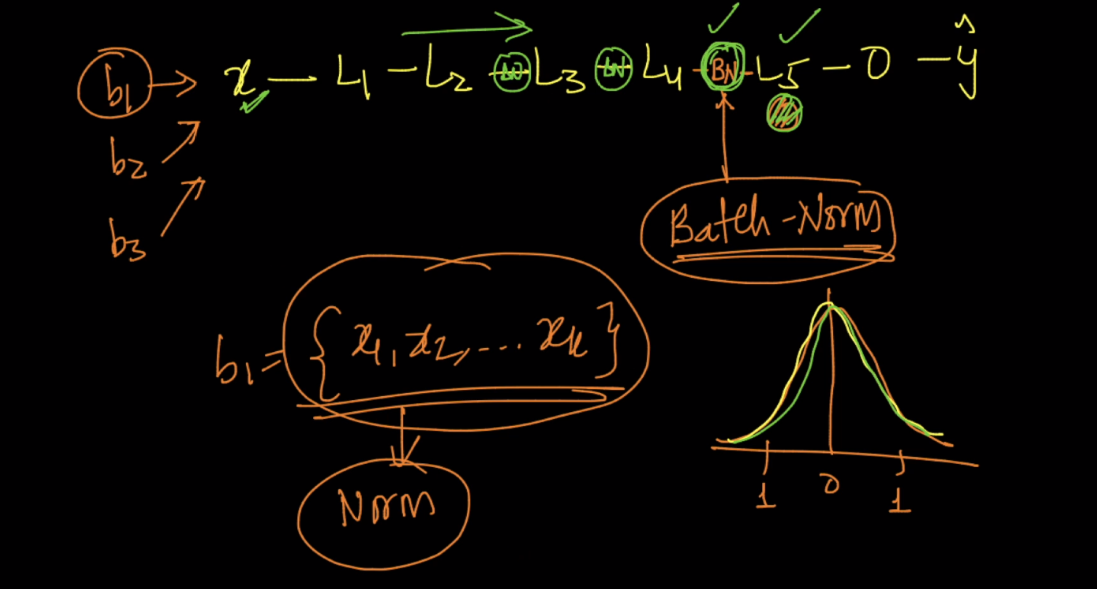 b1 → x — L1 — L2 — BN — L3 — BN — L4 — BN — L5 — O — ŷ
b2
b3
Batch-Norm
b1 = { x1, x2, ... xk }
Norm
1 0 1